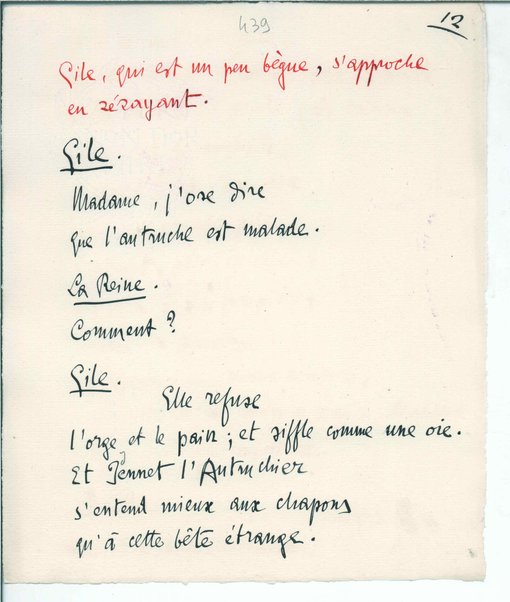 439
12
Gile, qui est un peu bègue, s'approche
en zézayant.
Gile.
Madame, j'ose dire
que l'autruche est malade.
La Reine.
Comment ?
Gile.
Elle refuse
l'orge et le pain ; et siffle comme une oie.
Et Jennet l'Autruchier
s'entend mieux aux chapons
qu'à cette bête étrange.